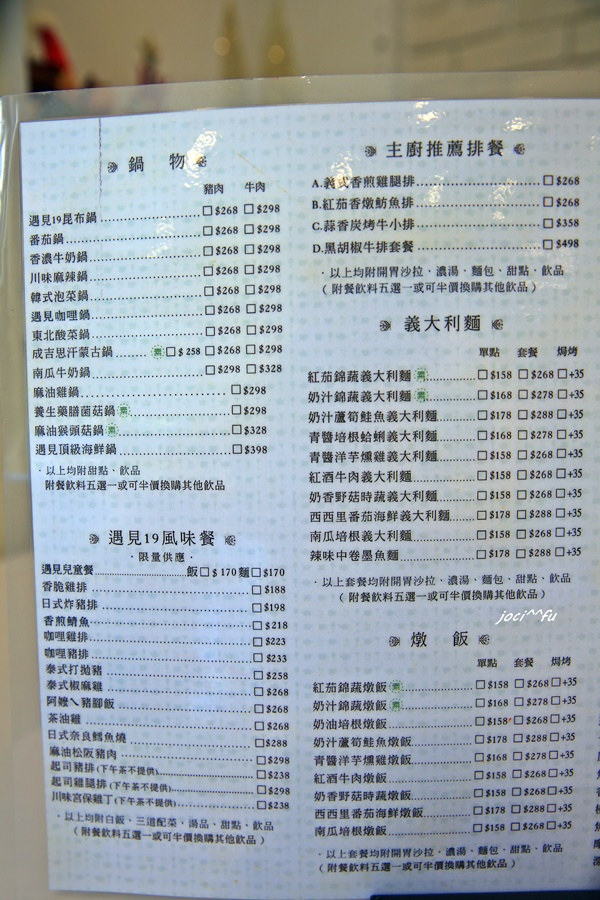 鍋 物
豬肉 牛肉
遇見19昆布鍋 □$268 □$298
番茄鍋 □$268 □$298
香濃牛奶鍋 □$268 □$298
川味麻辣鍋 □$268 □$298
韓式泡菜鍋 □$268 □$298
遇見咖哩鍋 □$268 □$298
東北酸菜鍋 □$268 □$298
成吉思汗蒙古鍋 素 □$258 □$268 □$298
南瓜牛奶鍋 □$298 □$328
麻油雞鍋 □$298
養生藥膳菌菇鍋 素 □$298
麻油猴頭菇鍋 素 □$328
遇見頂級海鮮鍋 □$398
·以上均附甜點、飲品
附餐飲料五選一或可半價換購其他飲品
遇見19風味餐
·限量供應·
遇見兒童餐 飯□$170 麵□$170
香脆雞排 □$188
日式炸豬排 □$198
香煎鯖魚 □$218
咖哩雞排 □$223
咖哩豬排 □$233
泰式打拋豬 □$258
泰式椒麻雞 □$268
阿嬤ㄟ豬腳飯 □$268
茶油雞 □$268
日式奈良鱈魚燒 □$288
麻油松阪豬肉 □$298
起司豬排(下午茶不提供) □$238
起司雞腿排(下午茶不提供) □$298
川味宮保雞丁(下午茶不提供) □$238
·以上均附白飯、三道配菜、湯品、甜點、飲品
(附餐飲料五選一或可半價換購其他飲品)
主廚推薦排餐
A.義式香煎雞腿排 □$268
B.紅茄香燉魴魚排 □$268
C.蒜香炭烤牛小排 □$358
D.黑胡椒牛排套餐 □$498
·以上均附開胃沙拉、濃湯、麵包、甜點、飲品
(附餐飲料五選一或可半價換購其他飲品)
義大利麵
單點 套餐 焗烤
紅茄錦蔬義大利麵 素 □$158 □$268 □+35
奶汁錦蔬義大利麵 素 □$168 □$278 □+35
奶汁蘆筍鮭魚義大利麵 □$178 □$288 □+35
青醬培根蛤蜊義大利麵 □$168 □$278 □+35
青醬洋芋燻雞義大利麵 □$158 □$268 □+35
紅酒牛肉義大利麵 □$158 □$268 □+35
奶香野菇時蔬義大利麵 □$158 □$268 □+35
西西里番茄海鮮義大利麵 □$178 □$288 □+35
南瓜培根義大利麵 □$158 □$268 □+35
辣味中卷墨魚麵 □$178 □$288 □+35
·以上套餐均附開胃沙拉、濃湯、麵包、甜點、飲品
(附餐飲料五選一或可半價換購其他飲品)
joci^^fu
燉 飯
單點 套餐 焗烤
紅茄錦蔬燉飯 素 □$158 □$268 □+35
奶汁錦蔬燉飯 素 □$168 □$278 □+35
奶油培根燉飯 □$158 □$268 □+35
奶汁蘆筍鮭魚燉飯 □$178 □$288 □+35
青醬洋芋燻雞燉飯 □$168 □$278 □+35
紅酒牛肉燉飯 □$158 □$268 □+35
奶香野菇時蔬燉飯 □$158 □$268 □+35
西西里番茄海鮮燉飯 □$178 □$288 □+35
南瓜培根燉飯 □$158 □$268 □+35
·以上套餐均附開胃沙拉、濃湯、麵包、甜點、飲品
(附餐飲料五選一或可半價換購其他飲品)